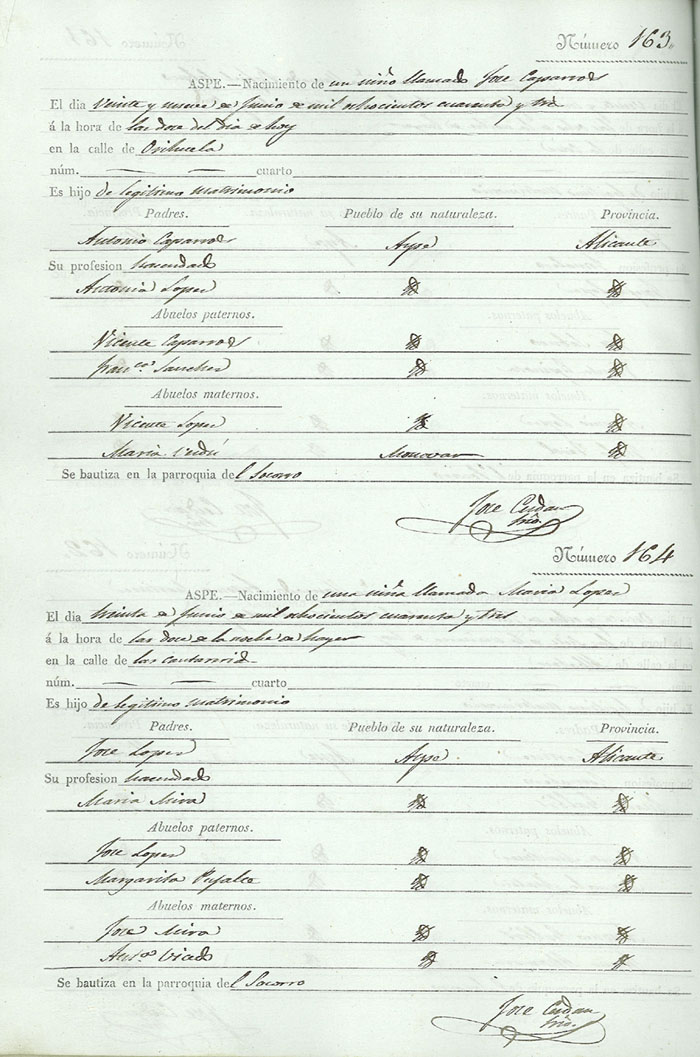 Número 163.
ASPE.—Nacimiento de un niño llamado Jose Caparros
El dia veinte y nueve de Junio de mil ochocientos cuarenta y tres
á la hora de las doce del dia de hoy
en la calle de Orihuela
núm. cuarto
Es hijo de legitimo matrimonio
Padres. Pueblo de su naturaleza. Provincia.
Antonio Caparros Aspe Alicante
Su profesion hacendado
Antonia Lopez
Abuelos paternos.
Vicente Caparros
Fran.ca Sanchez
Abuelos maternos.
Vicente Lopez
Maria Verdú Monovar
Se bautiza en la parroquia del Socorro
Jose
Número 164
ASPE.—Nacimiento de una niña llamada Maria Lopez
El dia treinta de Junio de mil ochocientos cuarenta y tres
á la hora de las doce de la noche de hayer
en la calle de las
núm. cuarto
Es hijo de legitimo matrimonio
Padres. Pueblo de su naturaleza. Provincia.
Jose Lopez Aspe Alicante
Su profesion hacendado
Maria Mira
Abuelos paternos.
Jose Lopez
Margarita Pujalte
Abuelos maternos.
Jose Mira
Ant.a Vicedo
Se bautiza en la parroquia del Socorro
Jose